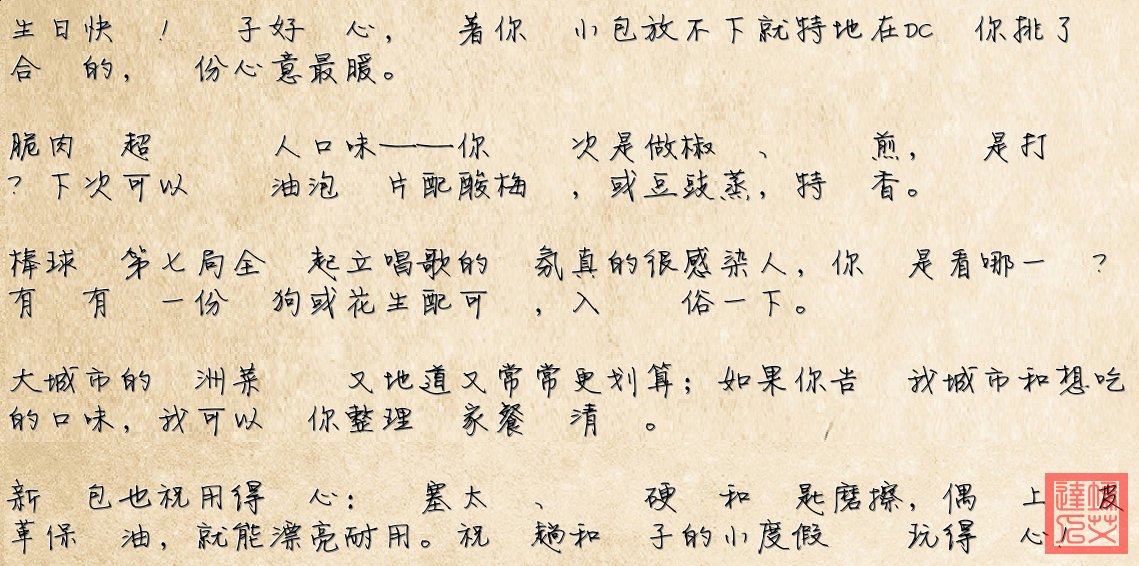 生日快 ！ 子好 心， 著你 小包放不下就特地在DC 你挑了
合 的， 份心意最暖。
脆肉 超 人口味——你 次是做椒 、 煎， 是打
？下次可以 油泡 片配酸梅 ，或豆豉蒸，特 香。
棒球 第七局全 起立唱歌的 氛真的很感染人，你 是看哪一 ？
有 有 一份 狗或花生配可 ，入 俗一下。
大城市的 洲菜 又地道又常常更划算；如果你告 我城市和想吃
的口味，我可以 你整理 家餐 清 。
新 包也祝用得 心： 塞太 、 硬 和 匙磨擦，偶 上 皮
革保 油，就能漂亮耐用。祝 趟和 子的小度假 玩得 心！